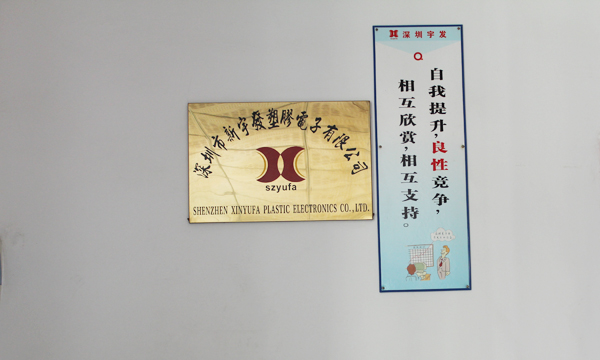 深圳市新宇發塑膠電子有限公司
szyufa
SHENZHEN XINYUFA PLASTIC ELECTRONICS CO.,LTD.
深圳宇发
自我提升,良性竞争,
相互欣赏,相互支持。